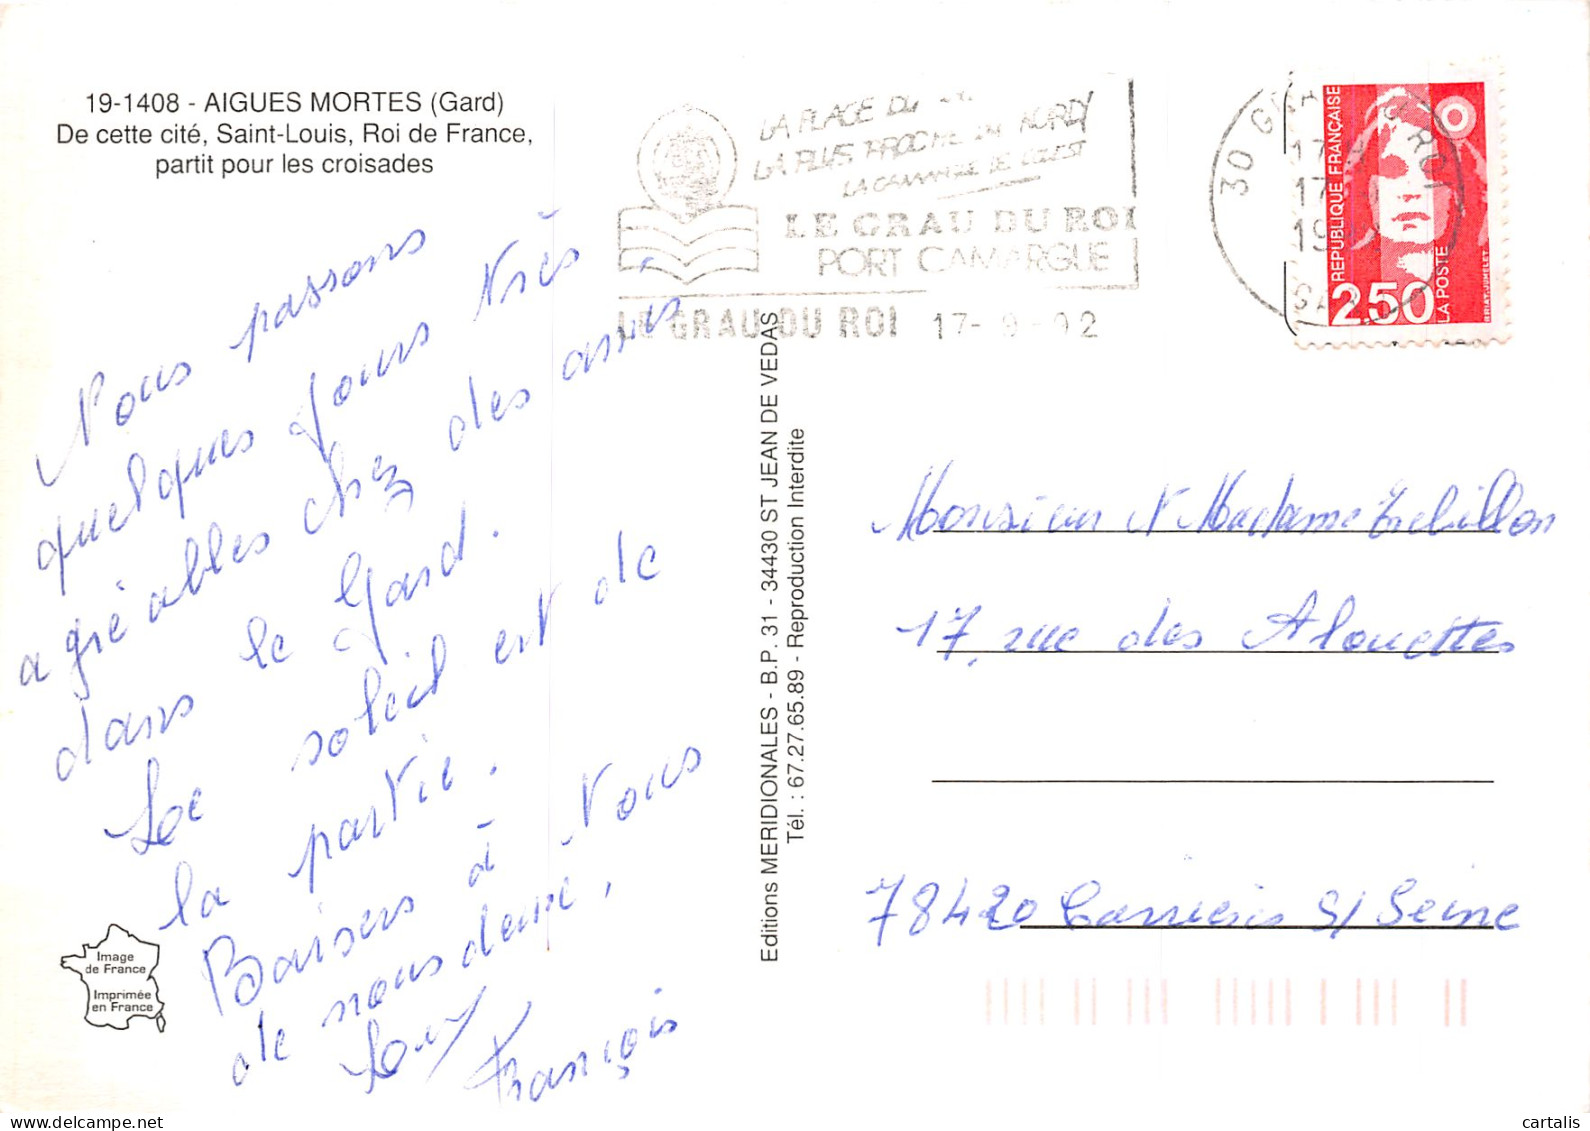 19-1408 - AIGUES MORTES (Gard)
De cette cité, Saint-Louis, Roi de France,
partit pour les croisades
Nous passons
quelques jours très
agréables chez des amis
dans le Gard.
Le soleil est de
la partie.
Baisers à vous
de nous deux,
François
Image
de France
Imprimée
en France
Editions MERIDIONALES - B.P. 31 - 34430 ST JEAN DE VEDAS
Tél. : 67.27.65.89 - Reproduction Interdite
LA PLAGE DU
LA PLUS PROCHE DU NORD
LA CAMARGUE DE
LE GRAU DU ROI
PORT CAMARGUE
LE GRAU DU ROI 17-9-92
30 GRAU DU ROI
17
17
19
GARD
REPUBLIQUE FRANÇAISE
2,50
LA POSTE
BRIAT.JUMELET
Monsieur et Madame
17, rue des Alouettes
78420 Carrières S/ Seine
cartalis